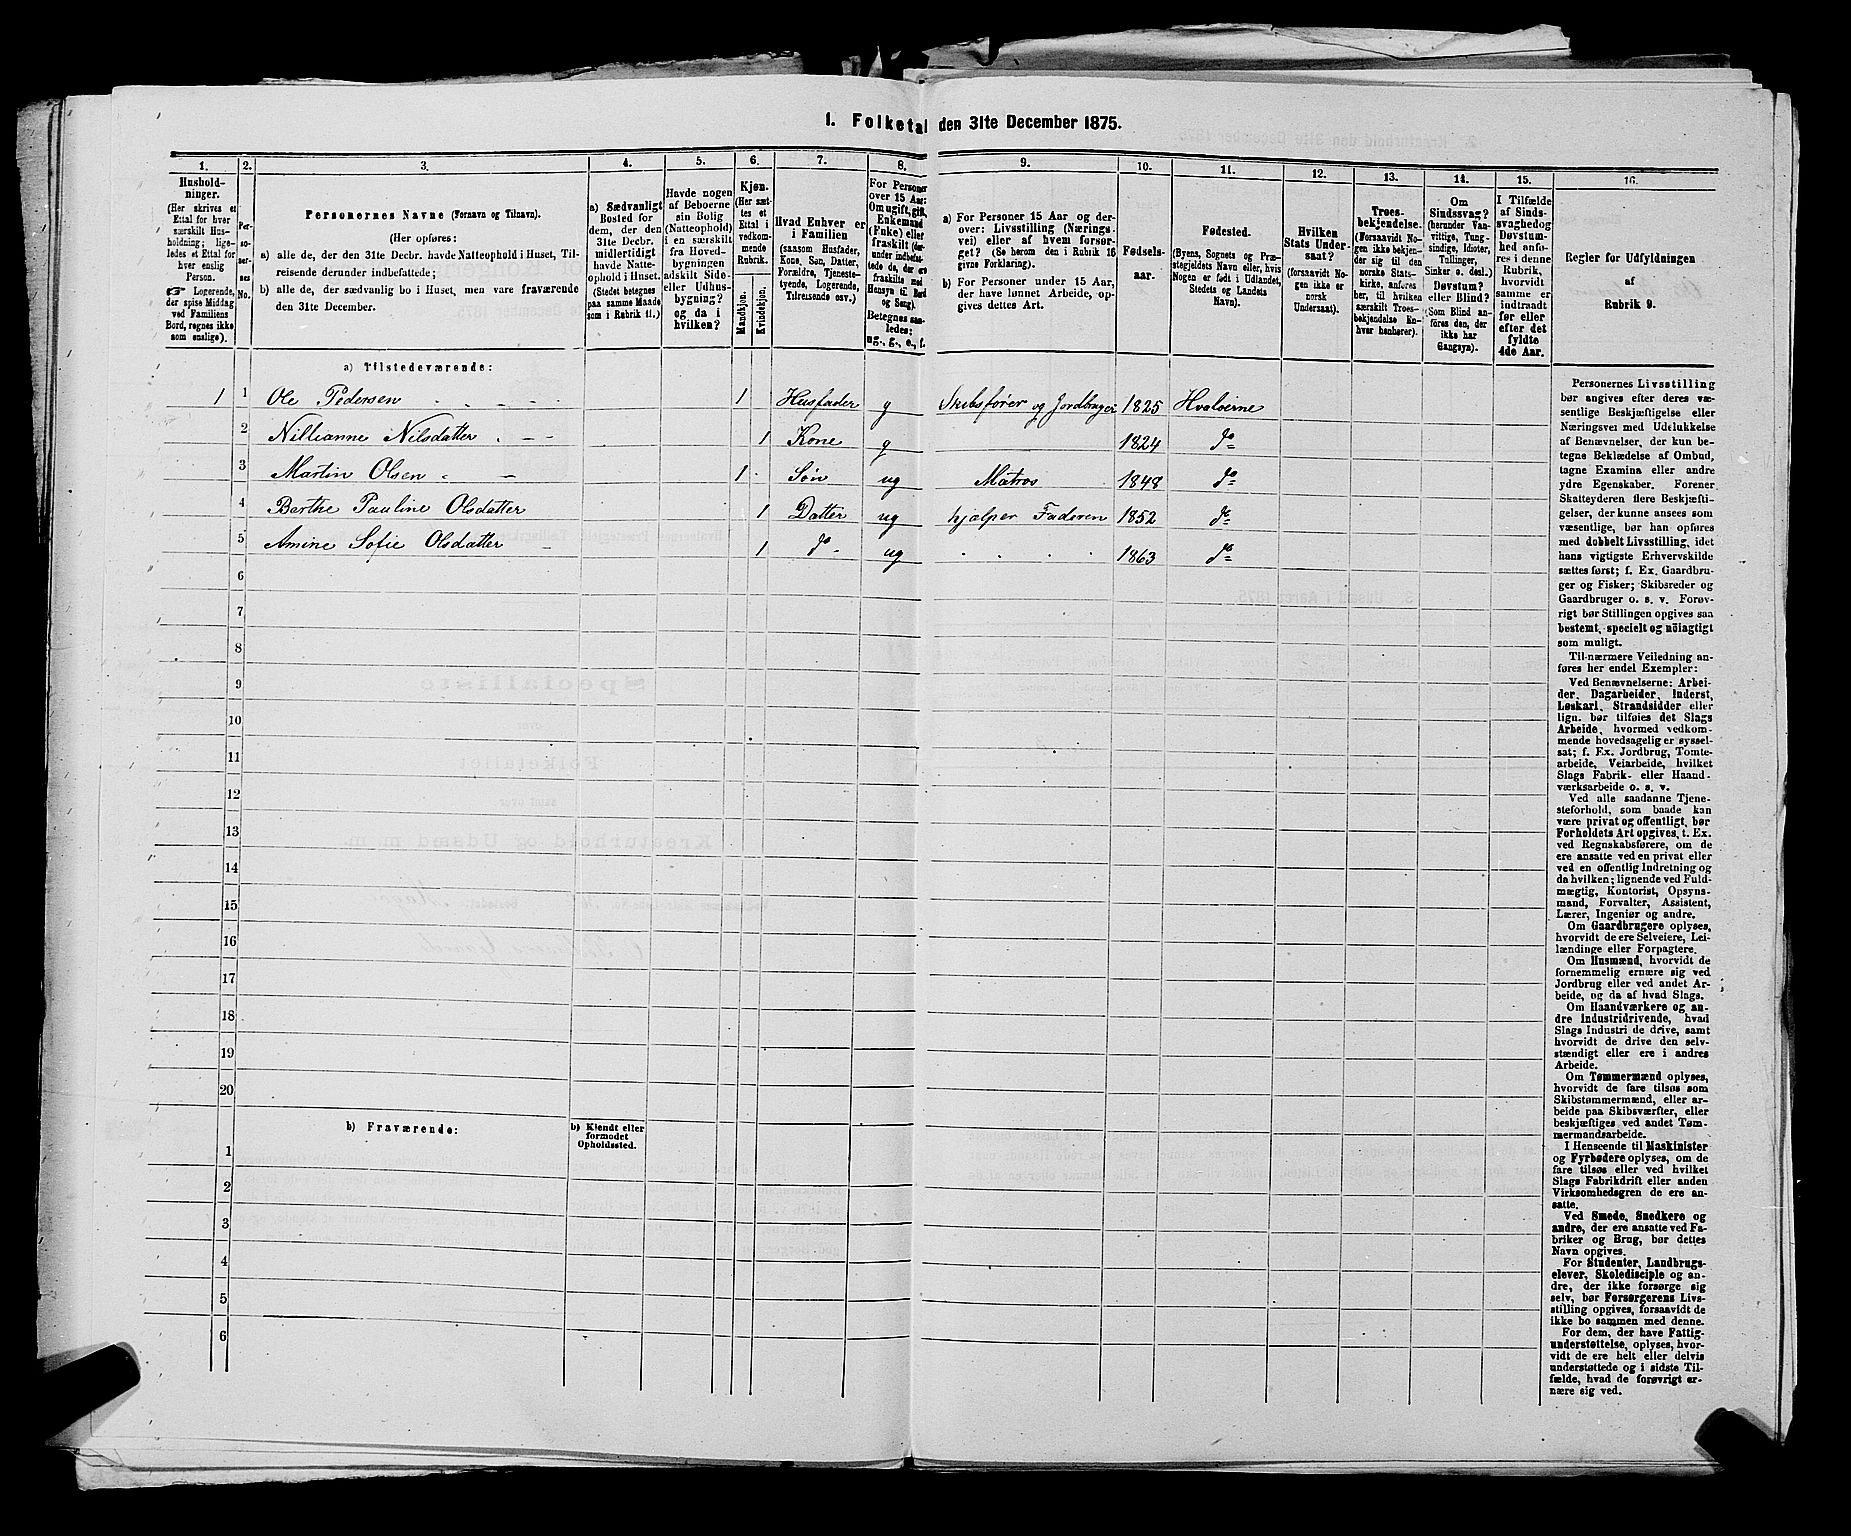 1. Folketal den 31te December 1875.
1. 2. 3. 4. 5. 6. 7. 8. 9. 10. 11. 12. 13. 14. 15. 16.
Hushold-
ninger.
(Her skrives et
Ettal for hver
særskilt Hus-
holdning; lige-
ledes et Ettal for
hver enslig
Person.
☞ Logerende,
der spise Middag
ved Familiens
Bord, regnes ikke
som enslige).
Per-
so-
ner-
nes
No.
Personernes Navne (Fornavn og Tilnavn).
(Her opføres:
a) alle de, der den 31te Decbr. havde Natteophold i Huset, Til-
reisende derunder indbefattede;
b) alle de, der sædvanlig bo i Huset, men vare fraværende
den 31te December.
a) Sædvanligt
Bosted for
dem, der den
31te Decbr.
midlertidigt
havde Natte-
ophold i Huset.
(Stedet betegnes
paa samme Maade
som i Rubrik 11.)
Havde nogen
af Beboerne
sin Bolig
(Natteophold)
i en særskilt
fra Hoved-
bygningen
adskilt Side-
eller Udhus-
bygning?
og da i
hvilken?
Kjøn.
(Her sæt-
tes et
Ettal i
vedkom-
mende
Rubrik.
Mandkjøn.
Kvindekjøn.
Hvad Enhver er
i Familien
(saasom Husfader,
Kone, Søn, Datter,
Forældre, Tjeneste-
tyende, Logerende,
Tilreisende osv.)
For Personer
over 15 Aar:
Om ugift, gift,
Enkemand
(Enke) eller
fraskilt (der-
under indbefat-
tede de, der ere
fraskilte med
Hensyn til Bord
og Seng).
Betegnes saa-
ledes:
ug., g., e., f.
a) For Personer 15 Aar og der-
over: Livsstilling (Nærings-
vei) eller af hvem forsør-
get? (Se herom den i Rubrik 16
givne Forklaring).
b) For Personer under 15 Aar,
der have lønnet Arbeide, op-
gives dettes Art.
Fødsels-
aar.
Fødested.
(Byens, Sognets og Præ-
stegjeldets Navn eller, hvis
Nogen er født i Udlandet,
Stedets og Landets
Navn).
Hvilken
Stats Under-
saat?
(forsaavidt No-
gen ikke er
norsk
Undersaat).
Troes-
bekjendelse.
(Forsaavidt No-
gen ikke bekjen-
der sig til den
norske Stats-
kirke, anføres
her, til hvilken
særskilt Troes-
bekjendelse En-
hver henhører).
Om
Sindssvag?
(herunder Van-
vittige, Tung-
sindige, Idioter,
Tullinger,
Sinker o. desl.)
Døvstum?
eller Blind?
(Som Blind an-
føres den, der
ikke har
Gangsyn).
I Tilfælde
af Sinds-
svaghed og
Døvstum-
hed anfø-
res i denne
Rubrik,
hvorvidt
samme er
indtraadt
før eller
efter det
fyldte
4de Aar.
Regler for Udfyldningen
af
Rubrik 9.
a) Tilstedeværende:
1 1 Ole Pedersen 1 Husfader g Skibsfører og Jordbruger 1825 Hvaløerne
2 Nillianne Nilsdatter 1 Kone g 1824 do
3 Martin Olsen 1 Søn ug Matros 1848 do
4 Berthe Pauline Olsdatter 1 Datter ug hjælper Faderen 1852 do
5 Amine Sofie Olsdatter 1 do ug 1863 do
6
7
8
9
10
11
12
13
14
15
16
17
18
19
20
b) Fraværende:
b) Kjendt eller
formodet
Opholdssted.
1
2
3
4
5
6
Personernes Livsstilling
bør angives efter deres væ-
sentlige Beskjæftigelse eller
Næringsvei med Udelukkelse
af Benævnelser, der kun be-
tegne Beklædelse af Ombud,
tagne Examina eller andre
ydre Egenskaber. Forener
Skatteyderen flere Beskjæfti-
gelser, der kunne ansees som
væsentlige, bør han opføres
med dobbelt Livsstilling, idet
hans vigtigste Erhvervskilde
sættes først; f. Ex. Gaardbru-
ger og Fisker; Skibsreder og
Gaardbruger o. s. v. Forøv-
rigt bør Stillingen opgives saa
bestemt, specielt og nöiagtigt
som muligt.
Til nærmere Veiledning an-
føres her endel Exempler:
Ved Benævnelserne: Arbei-
der, Dagarbeider, Inderst,
Løskarl, Strandsidder eller
lign. bør tilføies det Slags
Arbeide, hvormed vedkom-
mende hovedsagelig er syssel-
sat; f. Ex. Jordbrug, Tomte-
arbeide, Veiarbeide, hvilket
Slags Fabrik- eller Haand-
værksarbeide o. s. v.
Ved alle saadanne Tjene-
steforhold, som baade kan
være privat og offentligt, bør
Forholdets Art opgives, t. Ex.
ved Regnskabsførere, om de
ere ansatte ved en privat eller
ved en offentlig Indretning og
da hvilken; lignende ved Fuld-
mægtig, Kontorist, Opsyns-
mand, Forvalter, Assistent,
Lærer, Ingeniør og andre.
Om Gaardbrugere oplyses,
hvorvidt de ere Selveiere, Lei-
lændinge eller Forpagtere.
Om Husmænd, hvorvidt de
fornemmelig ernære sig ved
Jordbrug eller ved andet Ar-
beide, og da af hvad Slags.
Om Haandværkere og an-
dre Industridrivende, hvad
Slags Industri de drive, samt
hvorvidt de drive den selv-
stændigt eller ere i andres
Arbeide.
Om Tømmermænd oplyses,
hvorvidt de fare tilsøs som
Skibstømmermænd, eller ar-
beide paa Skibsværfter, eller
beskjæftiges ved andet Tøm-
mermandsarbeide.
I Henseende til Maskinister
og Fyrbødere oplyses, om de
fare tilsøs eller ved hvilket
Slags Fabrikdrift eller anden
Virksomhedsgren de ere an-
satte.
Ved Smede, Snedkere og
andre, der ere ansatte ved Fa-
briker og Brug, bør dettes
Navn opgives.
For Studenter, Landbrugs-
elever, Skoledisciple og an-
dre, der ikke forsørge sig
selv, bør Forsørgerens Livs-
stilling opgives, forsaavidt de
ikke bo sammen med denne.
For dem, der have Fattig-
understøttelse, oplyses, hvor-
vidt de ere helt eller delvis
understøttede og i sidste Til-
fælde, hvad de forøvrigt er-
nære sig ved.